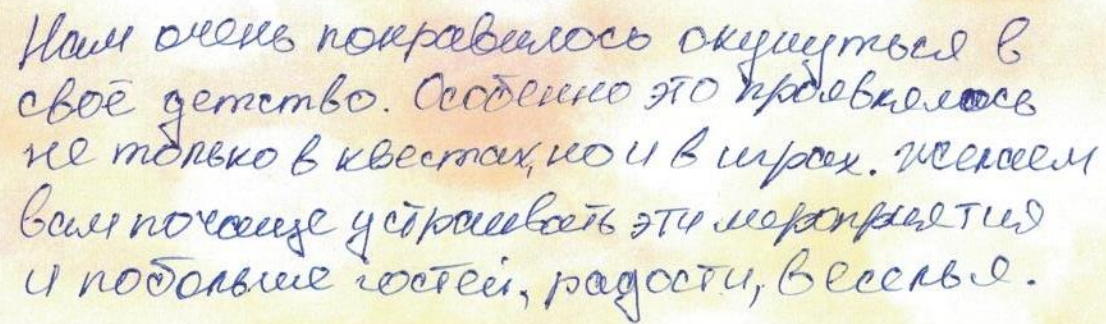 Нам очень понравилось окунуться в
своё детство. Особенно это проявлялось
не только в квестах, но и в играх. Желаем
вам почаще устраивать эти мероприятия
и побольше гостей, радости, веселья.